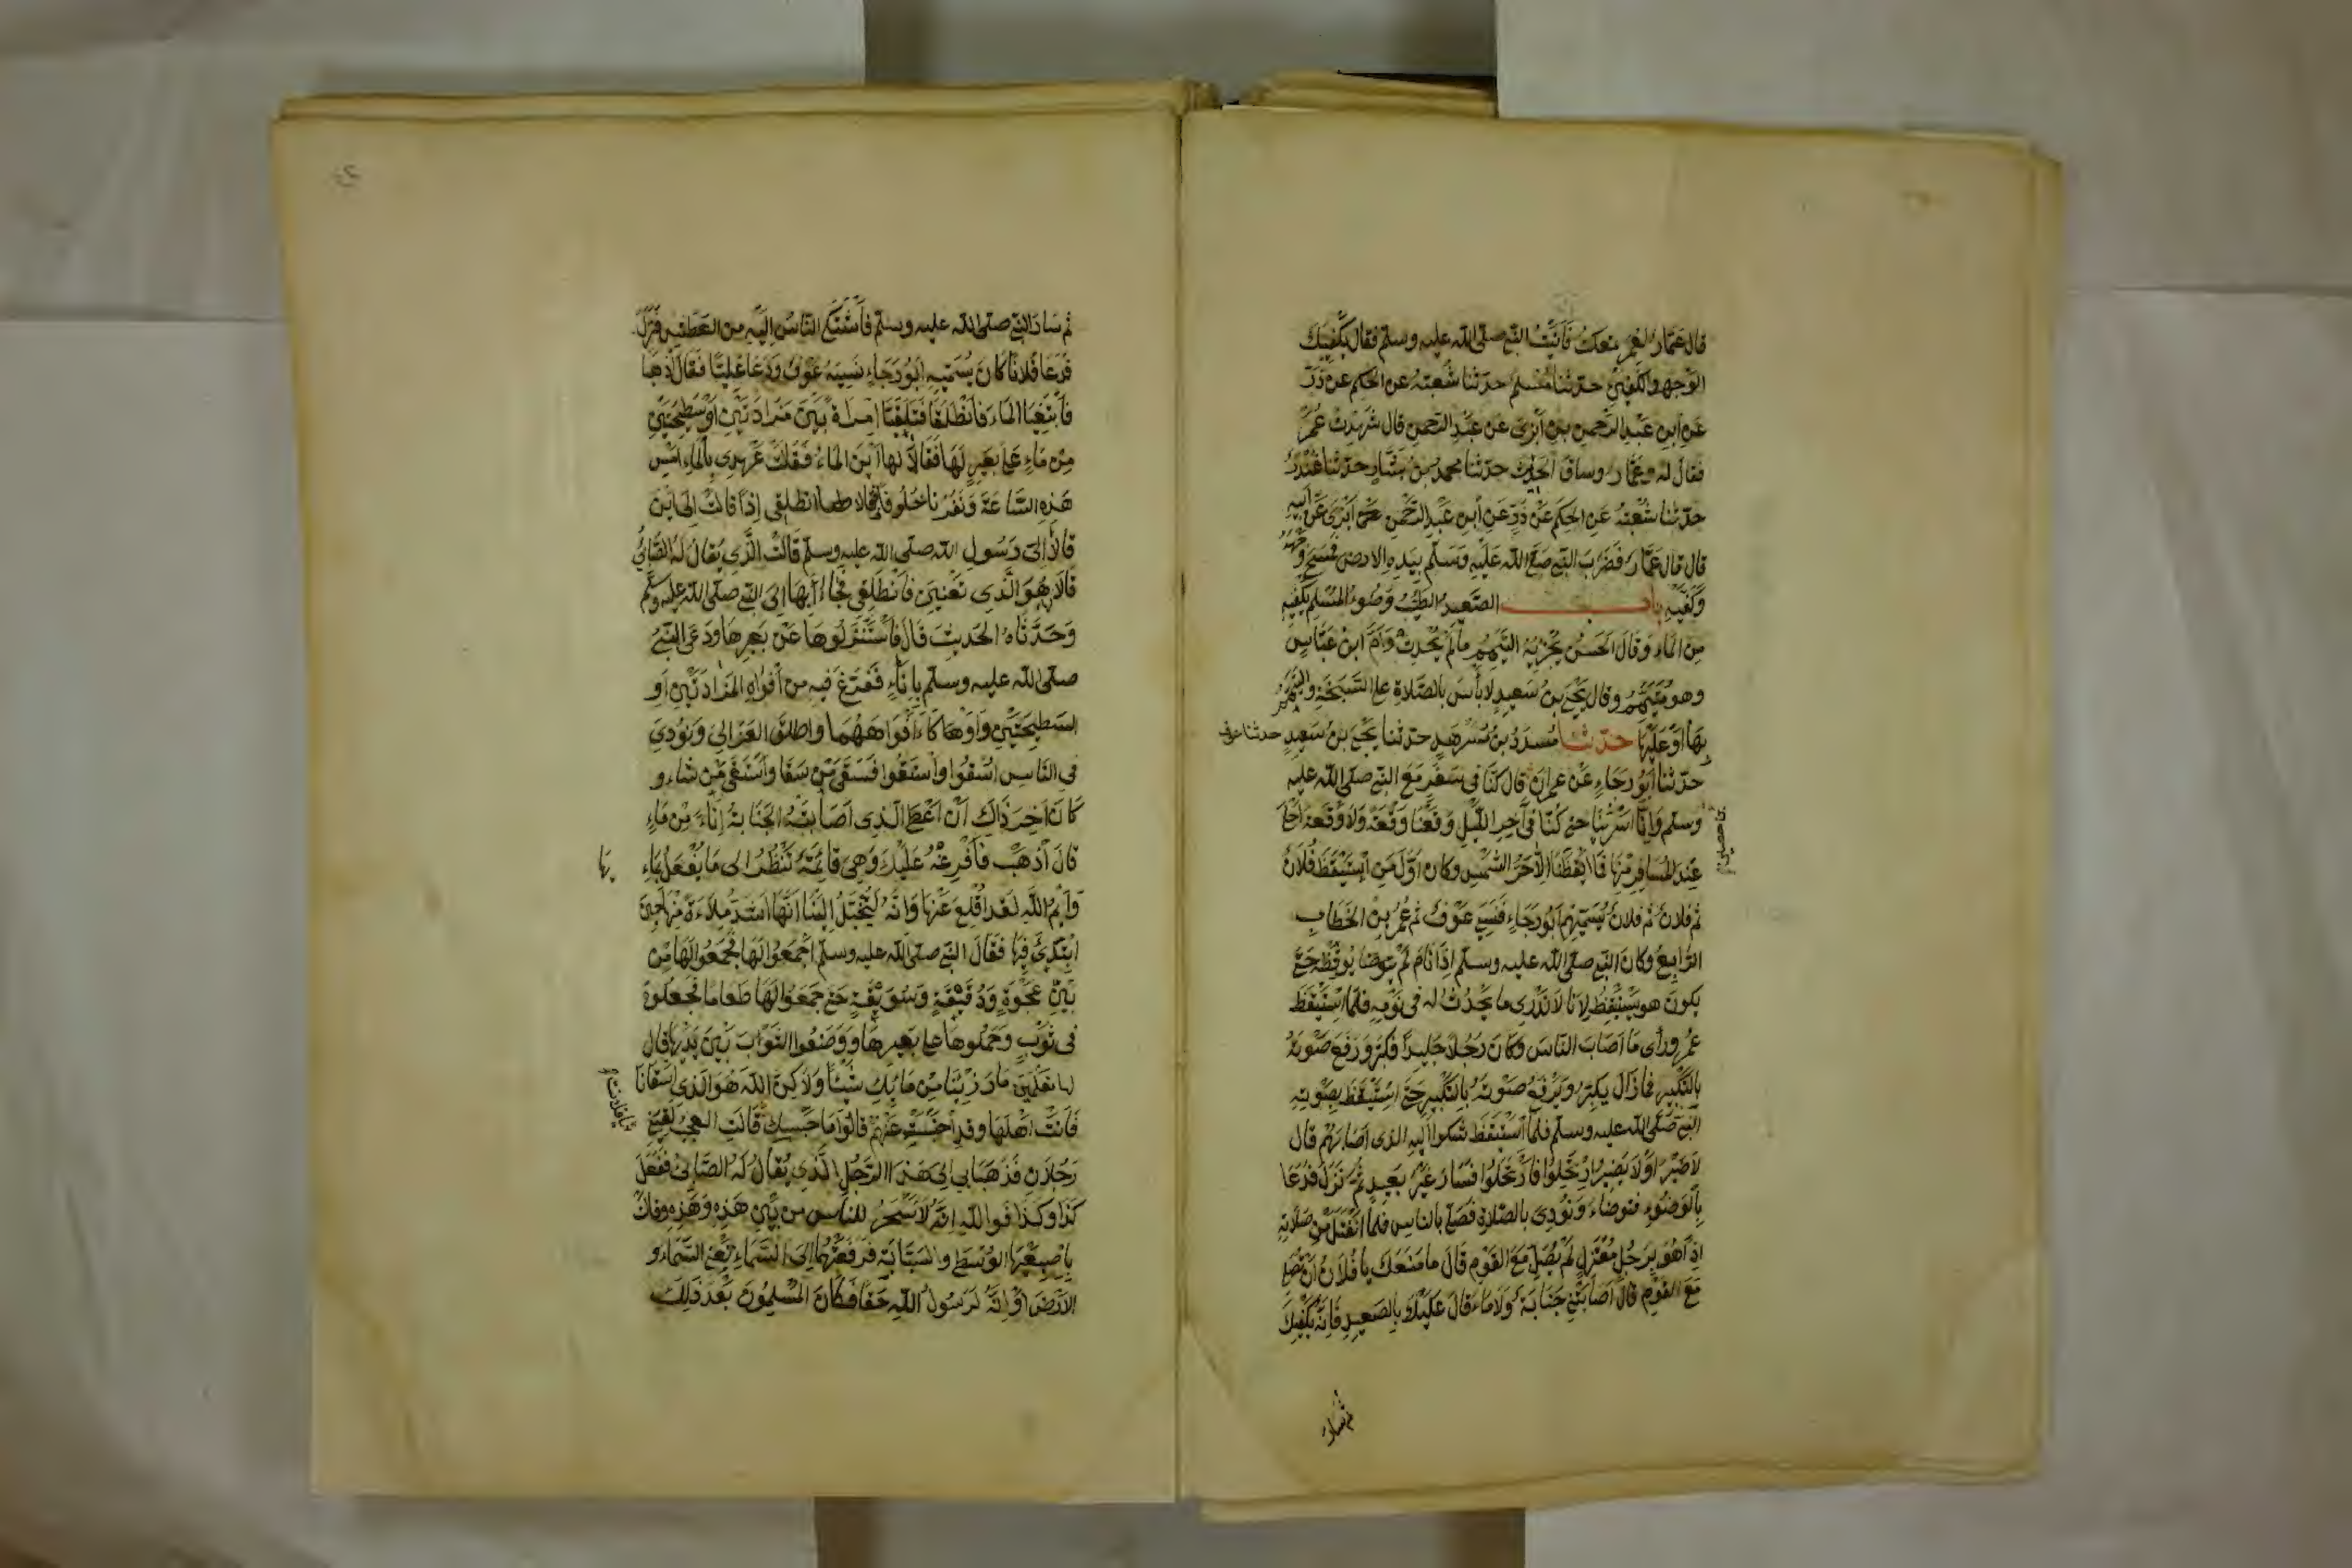 قال عمار لعمر تمعكت فأتيت النبي صلى الله عليه وسلم فقال يكفيك
الوجه والكفين حدثنا مسلم حدثنا شعبة عن الحكم عن ذر
عن ابن عبد الرحمن بن أبزى عن عبد الرحمن قال شهدت عمر
فقال له عمار وساق الحديث حدثنا محمد بن بشار حدثنا غندر
حدثنا شعبة عن الحكم عن ذر عن ابن عبد الرحمن بن أبزى عن أبيه
قال قال عمار فضرب النبي صلى الله عليه وسلم بيده الارض فمسح وجهه
وكفيه باب الصعيد الطيب وضوء المسلم يكفيه
من الماء وقال الحسن يجزئه التيمم ما لم يحدث وأم ابن عباس
وهو متيمم وقال يحيى بن سعيد لا بأس بالصلاة على السبخة والتيمم
بها أو عليها حدثنا مسدد بن مسرهد حدثنا يحيى بن سعيد حدثنا عوف
حدثنا أبو رجاء عن عمران قال كنا في سفر مع النبي صلى الله عليه
وسلم وإنا أسرينا حتى كنا في آخر الليل وقعنا وقعة ولا وقعة أحلى
عند المسافر منها فما أيقظنا إلا حر الشمس وكان أول من استيقظ فلان
ثم فلان ثم فلان يسميهم أبو رجاء فنسي عوف ثم عمر بن الخطاب
الرابع وكان النبي صلى الله عليه وسلم إذا نام لم يوقظ حتى
يكون هو يستيقظ لأنا لا ندري ما يحدث له في نومه فلما استيقظ
عمر ورأى ما أصاب الناس وكان رجلا جليدا فكبر ورفع صوته
بالتكبير فما زال يكبر ويرفع صوته بالتكبير حتى استيقظ بصوته
النبي صلى الله عليه وسلم فلما استيقظ شكوا إليه الذى أصابهم قال
لا ضير أو لا يضير ارتحلوا فارتحلوا فسار غير بعيد ثم نزل فدعا
بالوضوء فتوضاء ونودي بالصلاة فصلى بالناس فلما انفتل من صلاته
إذا هو برجل معتزل لم يصل مع القوم قال ما منعك يا فلان أن تصلي
مع القوم قال أصابتني جنابة ولا ماء قال عليك بالصعيد فإنه يكفيك
ثم سار
ثم سار النبي صلى الله عليه وسلم فأشتكى الناس إليه من العطش فنزل
فدعا فلانا كان يسميه أبو رجاء نسيه عوف ودعا عليا فقال اذهبا
فأبتغيا الماء فأنطلقا فتلقيا امراة بين مزادتين أو سطيحتين
من ماء على بعير لها فقالا لها أين الماء فقالت عهدي بالماء أمس
هذه الساعة ونفرنا خلوفا قالا لها انطلقى إذا قالت إلى أين
قالا إلى رسول الله صلى الله عليه وسلم قالت الذي يقال له الصابئ
قالا هو الذي تعنين فأنطلقي فجاءا بها إلى النبي صلى الله عليه وسلم
وحدثاه الحديث قال فأستنزلوها عن بعيرها ودعى النبي
صلى الله عليه وسلم بإناء ففرغ فيه من أفواه المزادتين أو
السطيحتين وأوكاء أفواههما واطلق العزالي ونودي
في الناس اسقوا وأستقوا فسقى من سقا وأستقى من شاء و
كان آخر ذاك أن أعطى الذى أصابته الجنابة إناء من ماء
قال أذهب فأفرغه عليك وهي قائمة تنظر الى ما يفعل بماء
بها
وأيم الله لقد اقلع عنها وانه ليخيل إلينا انها اشد ملاءة منها حين
ابتدئ فيها فقال النبي صلى الله عليه وسلم اجمعوا لها فجمعوا لها من
بين عجوة ودقيقة وسويقة حتى جمعوا لها طعاما فجعلوه
في ثوب وحملوها على بعيرها ووضعوا الثوب بين يديها قال
لها تعلمين ما رزئنا من مائك شيئا ولاكن الله هو الذي اسقانا
فأتت اهلها وقد احتبست عنهم قالوا ما حبسك قالت العجب لقيني
رجلان فذهبا بي إلى هذا الرجل الذي يقال له الصابئ ففعل
كذا وكذا فوالله إنه لأسحر الناس من بين هذه وهذه وقالت
بإصبعيها الوسطى والسبابة فرفعتهما إلى السماء تعني السماء و
الأرض أو إنه لرسول الله حقا فكان المسلمون بعد ذلك